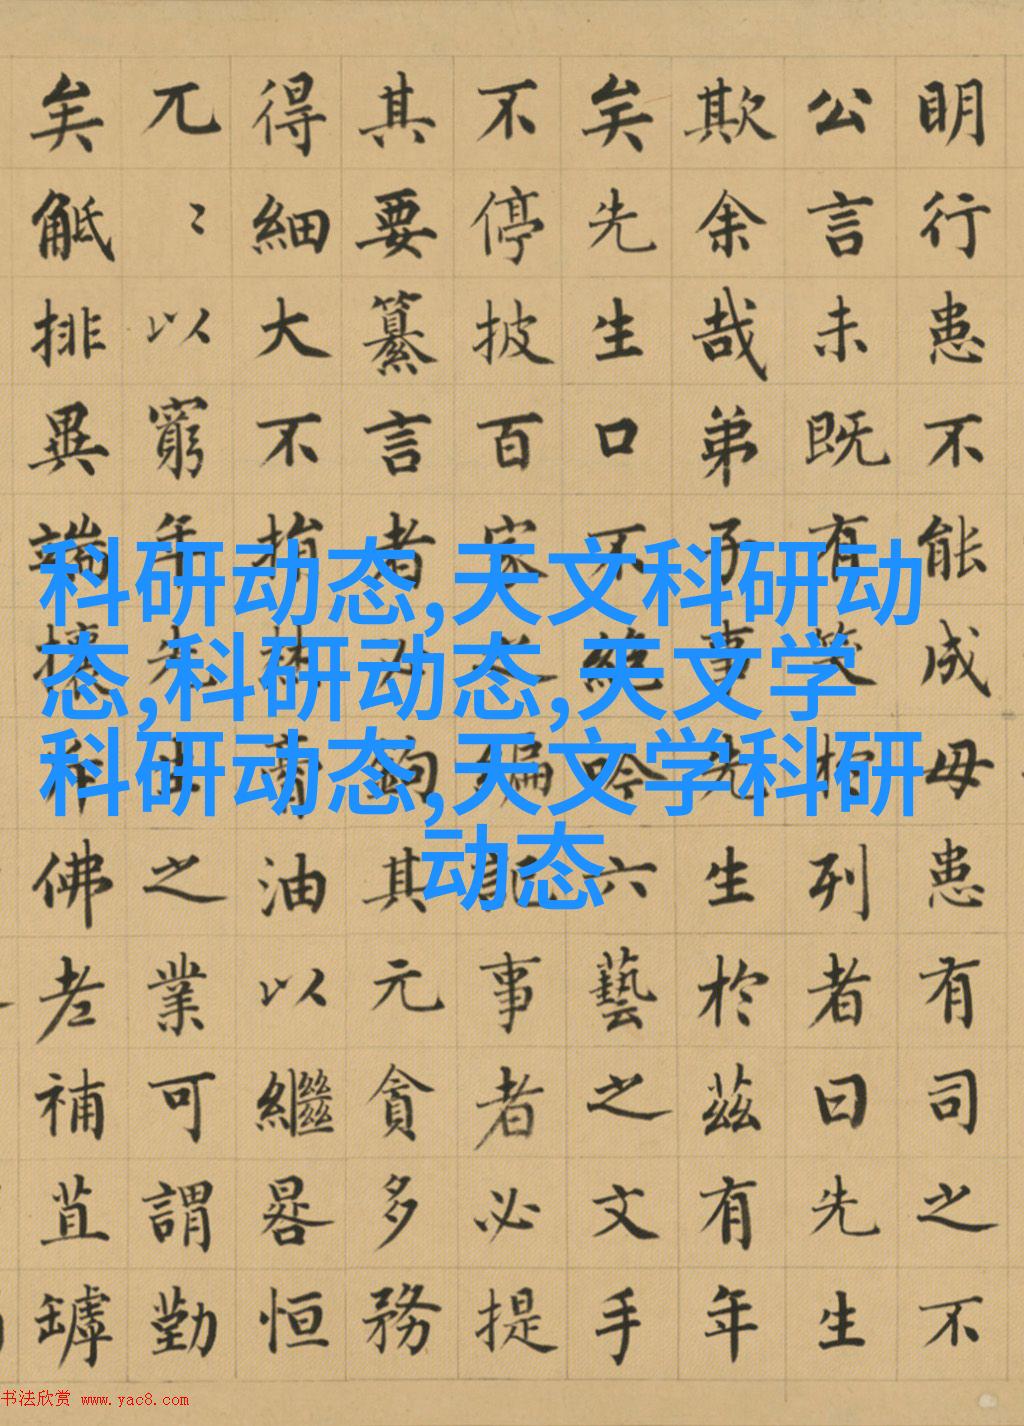 明行患不能成毋患有司之不
公言未既有笑於列者曰先生
欺余哉弟子事先生於茲有年
矣先生口不絕吟六藝之文手
不停披百家之編記事者必提
其要纂言者必鉤其元貪多務
得細大不捐焚膏油以繼晷恒
兀〻以窮年先生之業可謂勤
矣觝排異端攘斥佛老補苴罅
科研动态,天文科研动
态,科研动态,天文学
科研动态,天文学科研
动态
书法欣赏 www.yac8.com